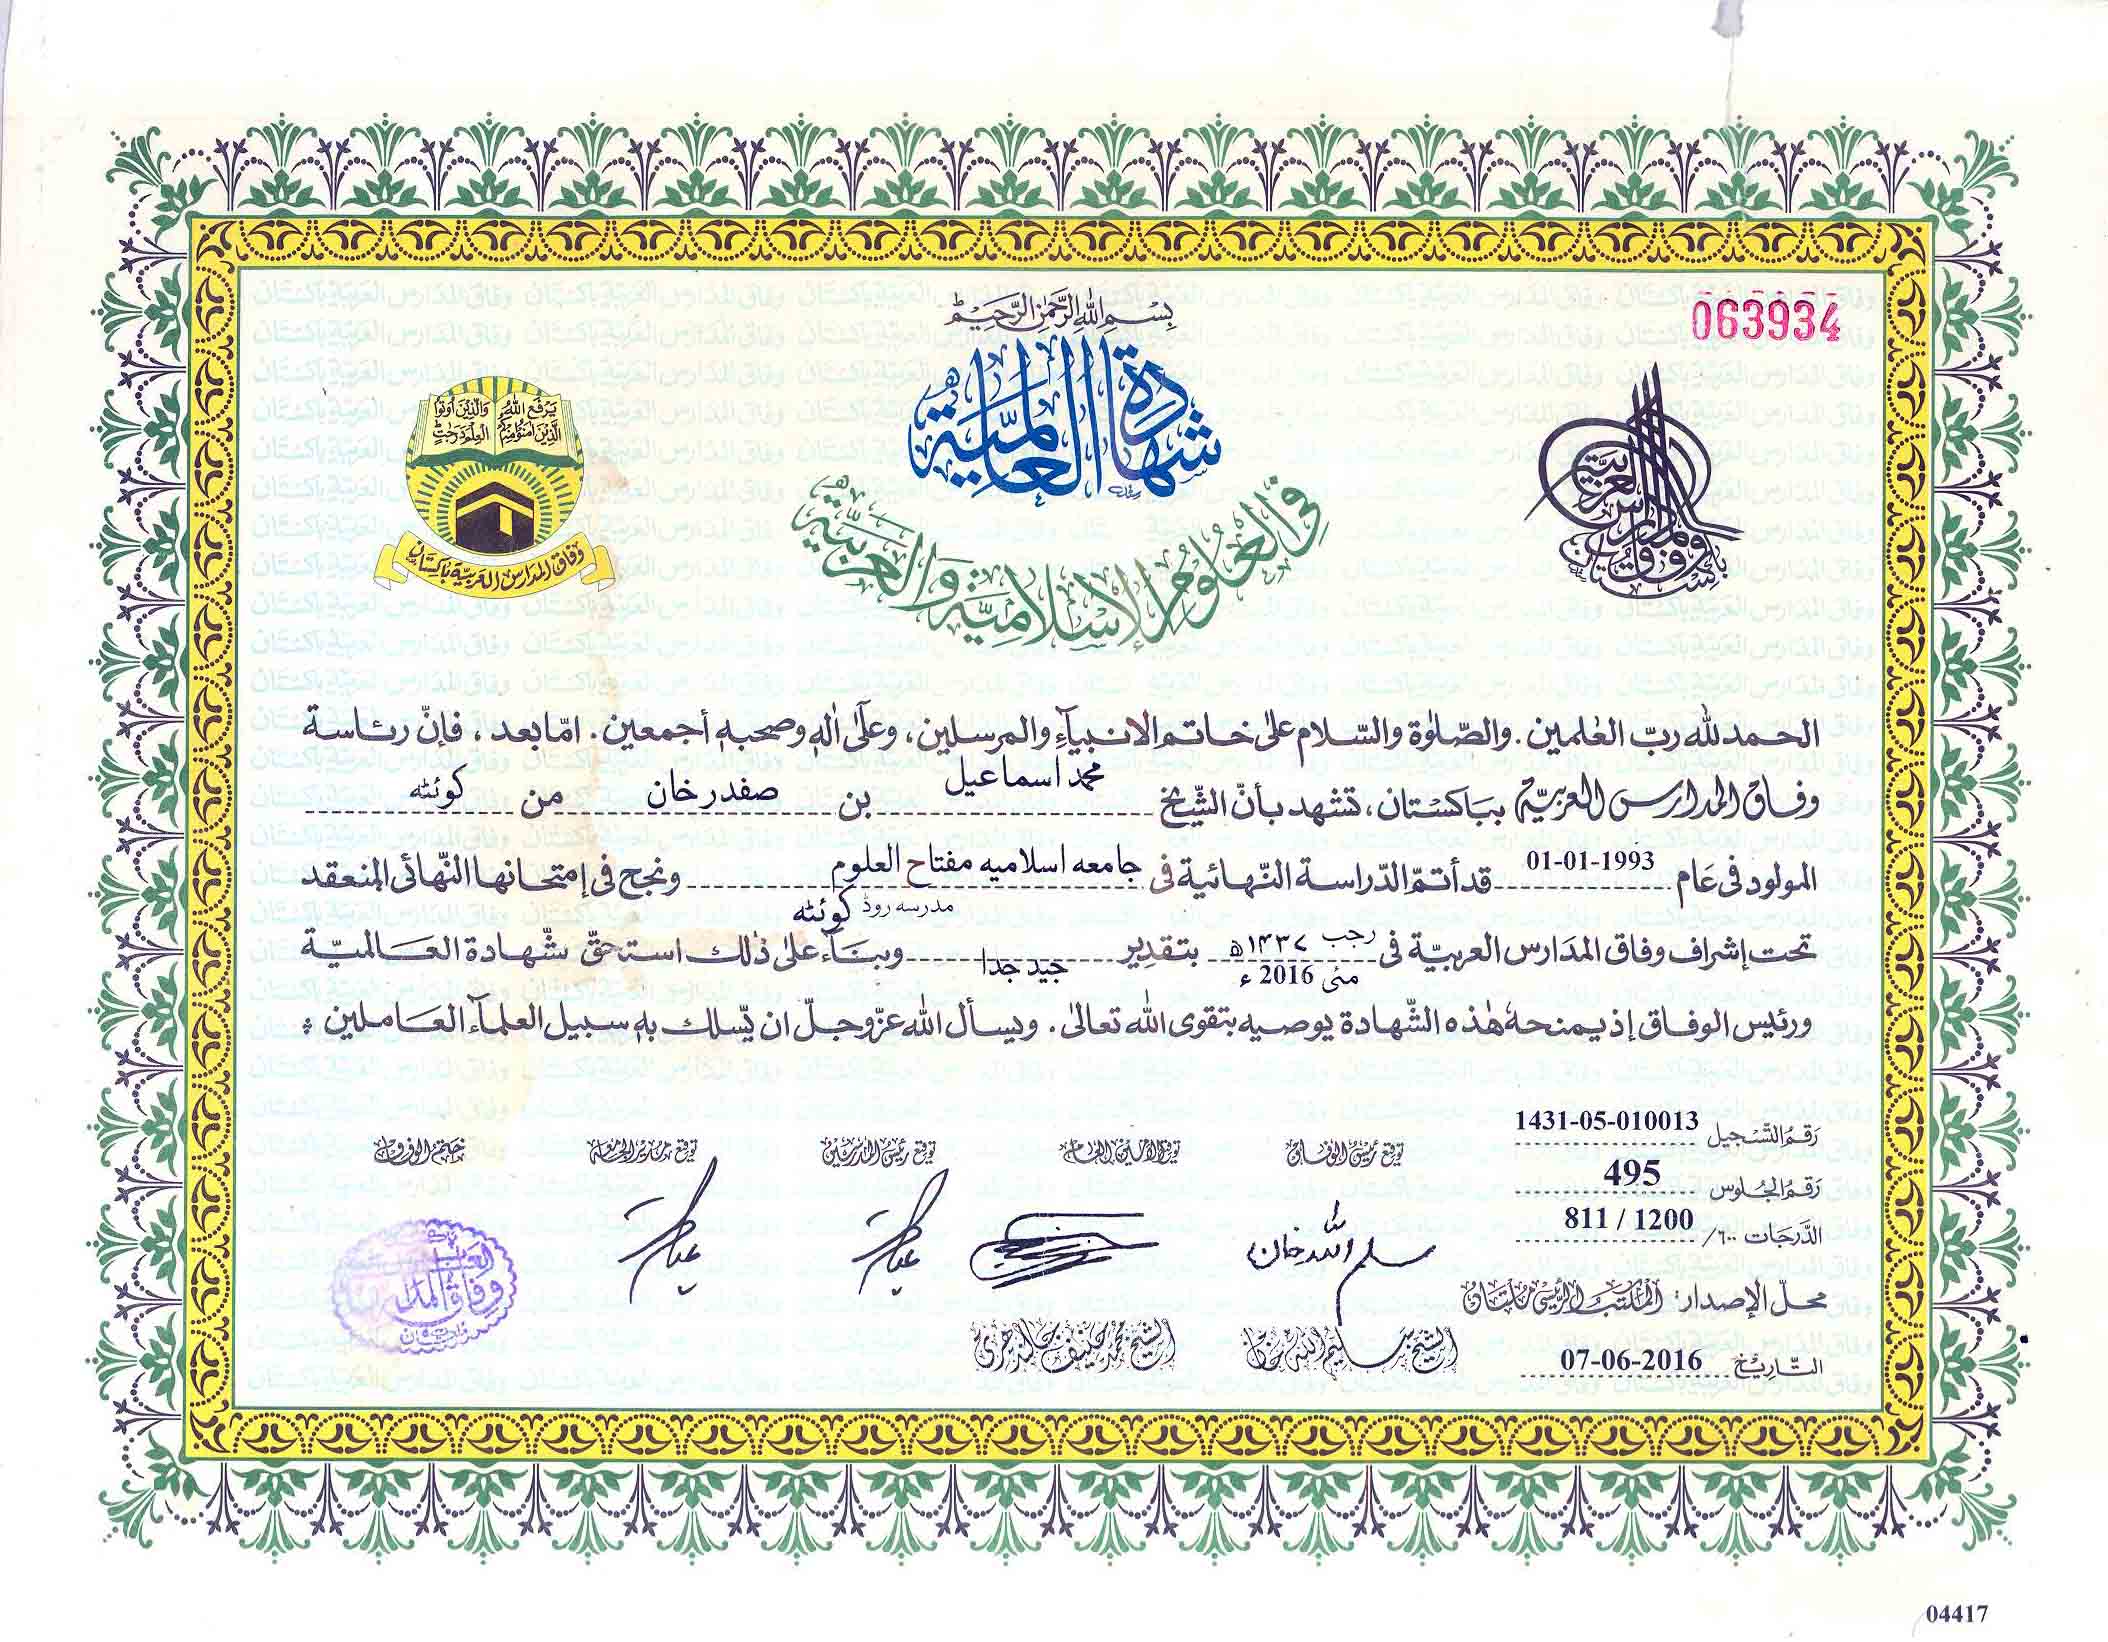 بِسْمِ اللهِ الرَّحْمٰنِ الرَّحِيْمِ
063934
شهادة العالمية
في العلوم الإسلامية والعربية
وفاق المدارس العربية باكستان
يَرْفَعِ اللهُ الَّذِيْنَ اٰمَنُوْا مِنْكُمْ
وَالَّذِيْنَ اُوْتُوا الْعِلْمَ دَرَجٰتٍ
وفاق المدارس العربيّة باكستان
الحمد لله ربّ العٰلمين. والصّلوٰة والسّلام علىٰ خاتم الانبيآءِ والمرسلين، وعلىٰ اٰلهٖ وصحبهٖ أجمعين. امّا بعد، فإنّ رئاسة
وفاق المدارس العربيّة بباكستان، تشهد بأنّ الشّيخ محمد اسماعيل بن صفدر خان من كوئٹه
المولود في عام 01-01-1993 قد أتمّ الدّراسة النّهائية في جامعه اسلاميه مفتاح العلوم ونجح في إمتحانها النّهائي المنعقد
مدرسه روڈ كوئٹه
تحت إشراف وفاق المدارس العربيّة في رجب ۱۴۳۷ھ بتقدير جيد جدا وبنآء علىٰ ذٰلك استحقّ شّهادة العالميّة
مئی 2016 ء
ورئيس الوفاق إذ يمنحه هٰذه الشّهادة يوصيه بتقوى الله تعالىٰ. ويسأل الله عزّ وجلّ ان يّسلك بهٖ سبيل العلمآء العاملين
رقم التّسجيل 1431-05-010013
رقم الجلوس 495
الدّرجات ٦٠٠/ 811 / 1200
محلّ الإصدار: المكتب الرّئيسي ملتان
التّاريخ 07-06-2016
توقيع رئيس الوفاق
توقيع الأمين العام
توقيع رئيس المدرسين
توقيع مدير الجامعة
ختم الوفاق
سليم الله خان
الشيخ سليم الله خان
الشيخ محمد حنيف جالندهري
04417